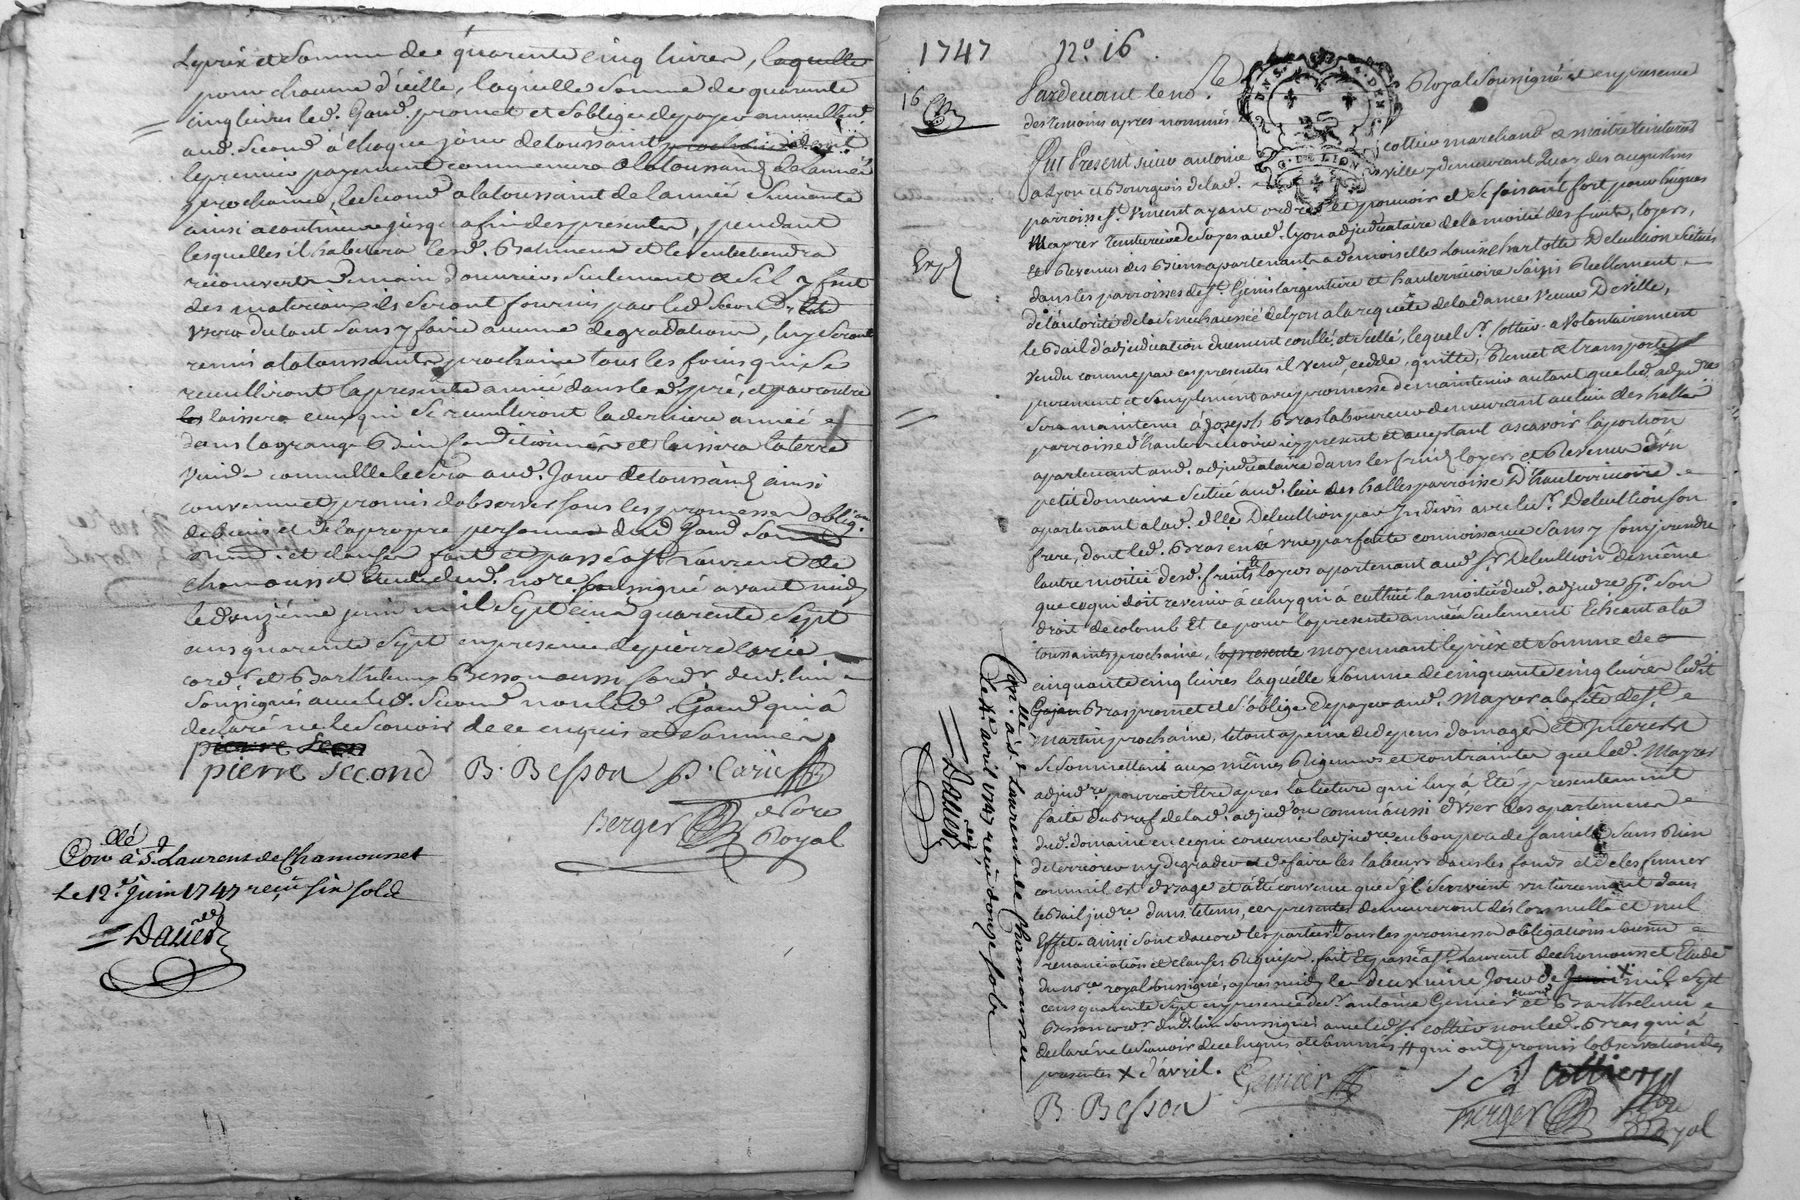 Le prix et somme de quarante cinq livres, laquelle
pour chacune d'icelle, laquelle somme de quarante
cinq livres led. Gand. promet et s'oblige de payer annuellemt.
aud. Second à chaque jour de toussaint
le premier payement commencera a la toussaint de l'année
prochaine, le second a la toussaint de l'année suivante
ainsi a continuer jusqu'a fin des presentes, pendant
lesquelles il habitera lesd. Batiments et les entretiendra
recouverts de main d'ouvriers seulement & s'il y faut
des matereaux ils seront fournis par led. Second,
usera du tout sans y faire aucune degradation, luy seront
remis a la toussaint prochaine tous les foins qui se
recuilliront la presente année dans led. pré, et par contre
les laissera ceux qui se recuilliront la derniere année
dans la grange bien conditionnés et laissera la terre
vuide comme elle le sera aud. Jour de toussaint ainsi
convenu et promis d'observer sous les promesses oblig.on
de biens et de sa propre personne dud. Gand
et clauses fait et passé a St. Laurent de
chamousset Etude dud. nore. soussigné avant midy
le douzième juin mil sept cent quarante sept
ans quarante sept en presence de pierre Carie
cord.r et Barthelemy Besson aussi cord.r dud. lieu
soussignés avec led. Second non led. Gand qui à
declaré ne le scavoir de ce enquis et sommé.
pierre Secon
pierre second B. Besson p. Carie
Berger nore Royal
Con.llé à St Laurent de Chamousset
Le 12e. Juin 1747 reçu six sols
Daued
1747 No. 16
16
Expd
Pardevant le no.re Royal soussigné et en presence
des temoins apres nommés.
Fut Present sieur antoine cottier marchand & maitre teinturier
a Lyon et Bourgeois de lad. ville y demeurant Quay des augustins
parroisse St. Vincent ayant ordre et pouvoir et se faisant fort pour hugues
Mayres teinturier de soyes aud. Lyon adjudicataire de la moitié des fruits, loyers,
Et Revenus des Biens apartenants a demoiselle Louise charlotte Deleullion scitués
dans les parroisses de St. Genis largentiere et hauterivoire saisis Réellement
de l'autorité de la Senechaussée de Lyon a la requête de la dame Veuve Deville,
le Bail d'adjudication duement conllé. et scellé, lequel Sr. Cottier a volontairement
vendu comme par ces presentes il vend, cedde, quitte, Remet & transporte
purement et simplement avec promesse de maintenir autant que led. adjud.re
sera maintenu à Joseph Bras laboureur demeurant au lieu des halles
parroisse d'hauterivoire icy present et aceptant ascavoir la portion
apartenant aud. adjudicataire dans les fruits, loyers et Revenus d'un
petit domaine scitué aud. lieu des halles parroisse D'hauterivoire
apartenant a lad. dlle. Deleullion par Indivis avec le Sr. Deleullion son
frere, dont led. Bras en à une parfaite connoissance sans y comprendre
l'autre moitié desd. fruits & loyers apartenant aud. Sr. Deleullion de même
que ce qui doit revenir à celuy qui à cultivé la moitié dud. adjud.re pr. son
droit de colomb Et ce pour la presente année seulement Echeant a la
toussaints prochaine, la presente moyennant le prix et somme de
cinquante cinq livres laquelle somme de cinquante cinq livres ledit
Bras promet et s'oblige de payer aud. Mayres a la fête de St.
Martin prochaine, le tout a peine de depens domages et Interests
se soumettant aux mêmes Rigueurs et contraintes que led. Mayres
adjud.re pourroit Etre apres la lecture qui luy à Eté presentement
faite du Bref de lad. adjud.on comme aussi d'user des apartements
dud. domaine en ce qui concerne lad. adjud.re en bon pere de famille sans Rien
deteriorer ny degrader et de faire les labeurs dans les fonds et de les fumer
comme il est d'usage et a été convenu que s'il survient un
le Bail jud.re dans le tems, ces presentes demeureront dès lors nulles et nul
Effet. ainsi sont d'acord les parties # sous les promesses obligations soumi
renonciations et clauses Requises. fait Et passé a St. Laurent de chamousset Etude
du no.re royal soussigné, apres midy le deuxieme Jour de Juin X mil sept
cens quarante sept en presence de Sr. antoine Genier et Barthelemi
Besson cord.r dud. lieu soussignés avec led. Sr. Cottier non led. Bras qui à
declaré ne le scavoir de ce Enquis et sommés # qui ont promis l'observation des
presentes X d'avril. Genier Cottier
B. Besson Berger nore Royal
Con.llé à St. Laurent de Chamousset
Le avril 1747 reçu douze sols
Daued